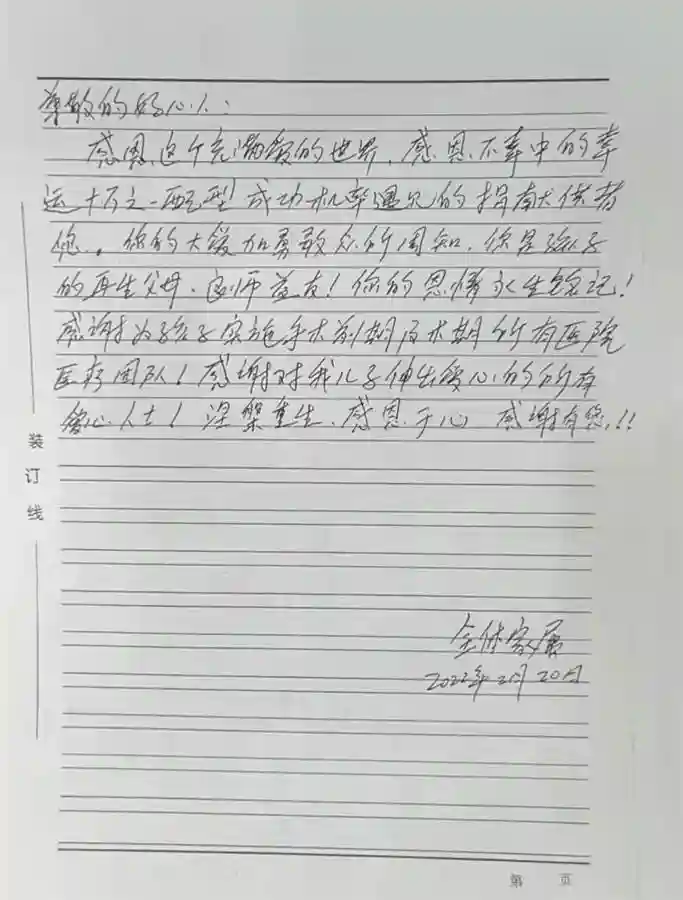 尊敬的好心人:
感恩这个充满爱的世界，感恩不幸中的幸
运十万之一配型成功机率遇见的捐献大供者
您。你的大爱加勇敢众所周知，你是孩子
的再生父母、良师益友！你的恩情永生铭记！
感谢为孩子实施手术前期及术期所有医院
医疗团队！感谢对我儿子伸出爱心的所有
爱心人士！涅槃重生、感恩于心 感谢有您!!!
全体家属
2022年2月20日
装订线
第 页